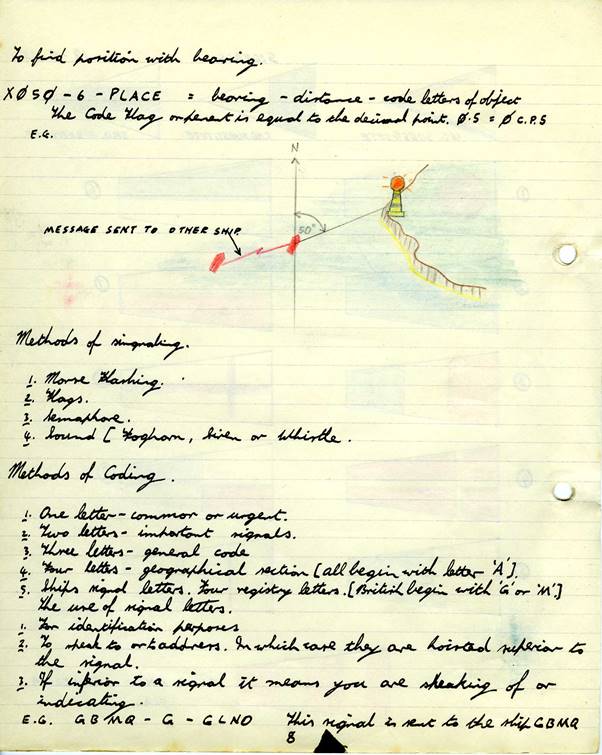 To find position with bearing.
XØ5Ø - 6 - PLACE = bearing - distance - code letters of object
The Code Flag or penent is equal to the decimal point. Ø.5 = Ø C.P.5
E.G.
N
50°
MESSAGE SENT TO OTHER SHIP
Methods of singnaling.
1. Morse Flashing.
2. Flags.
3. Semaphore.
4. Sound [ Foghorn, Siren or Whistle.
Methods of Coding.
1. One letter - common or urgent.
2. Two letters - important signals.
3. Three letters - general code
4. Four lettes - geographical section [all begin with letter 'A'].
5. Ships signal letters. Four registry letters. [British begin with 'G' or 'M']
The use of signal letters.
1. For identification perposes
2. To speak to or to address. In which case they are hoisted superior to
the signal.
3. If inferior to a signal it means you are speaking of or
indecating.
E.G. GBMQ - G - GLNO This signal is sent to the ship GBMQ
8